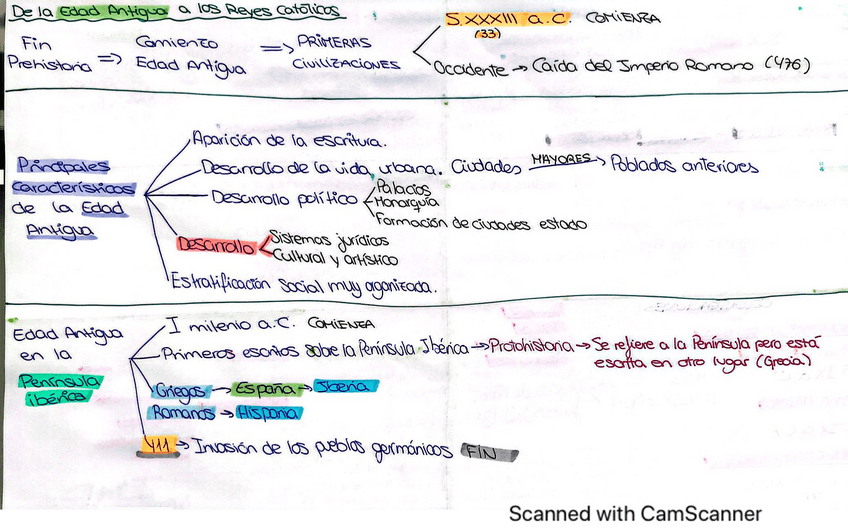 De la Edad Antigua a los Reyes Católicos
Fin Prehistoria => Comienzo Edad Antigua => PRIMERAS CIVILIZACIONES
S XXXIII a.C. COMIENZA
(33)
Occidente → Caída del Imperio Romano (476)
Principales características de la Edad Antigua
Aparición de la escritura.
Desarrollo de la vida urbana. Ciudades MAYORES → Poblados anteriores
Desarrollo político
Palacios
Monarquía
Formación de ciudades estado
Desarrollo
Sistemas jurídicos
Cultural y artístico
Estratificación social muy organizada.
Edad Antigua en la Península ibérica
I milenio a.C. COMIENZA
Primeros escritos sobe la Península Ibérica → Protohistoria → Se refiere a la Península pero está
escrita en otro lugar (Grecia)
Griegos → España → Iberia
Romanos → Hispania
411 → Invasión de los pueblos germánicos FIN
Scanned with CamScanner